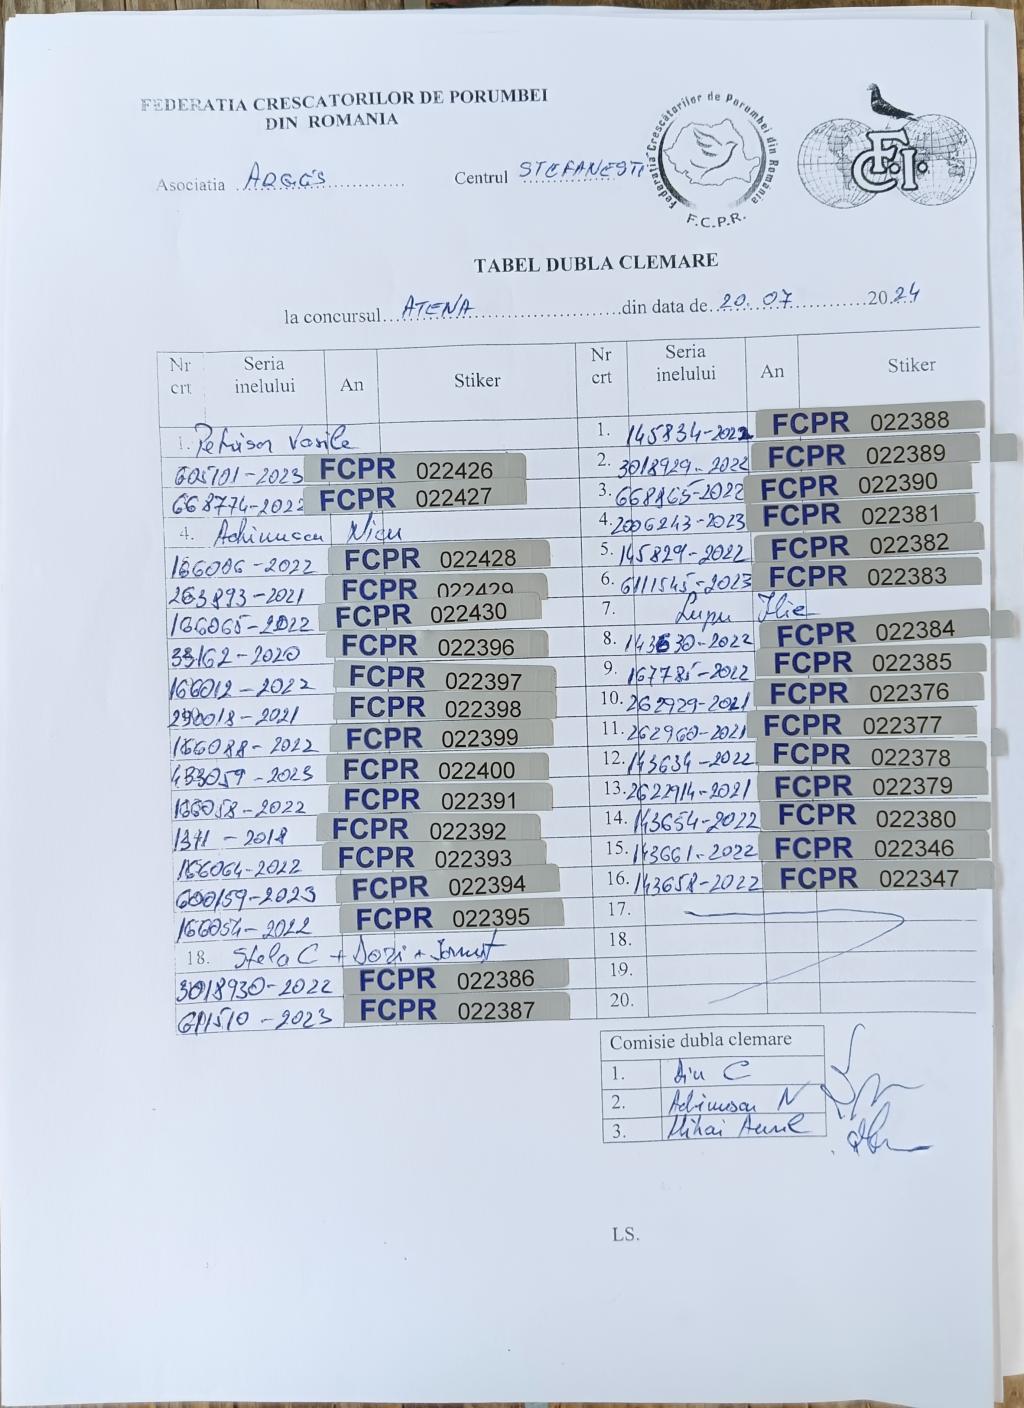 FEDERATIA CRESCATORILOR DE PORUMBEI
DIN ROMANIA
Federatia Crescătorilor de Porumbei din România
F.C.P.R.
F.C.I.
Asociatia ARGES Centrul STEFANESTI
TABEL DUBLA CLEMARE
la concursul ATENA din data de 20.07 2024
Nr crt Seria inelului An Stiker
1. Petrisor Vasile
605101-2023 FCPR 022426
668774-2022 FCPR 022427
4. Achimescu Nicu
166006-2022 FCPR 022428
263893-2021 FCPR 022429
166065-2022 FCPR 022430
33162-2020 FCPR 022396
166012-2022 FCPR 022397
290018-2021 FCPR 022398
166088-2022 FCPR 022399
433059-2023 FCPR 022400
166058-2022 FCPR 022391
1371-2018 FCPR 022392
166064-2022 FCPR 022393
600159-2023 FCPR 022394
166054-2022 FCPR 022395
18. Stela C + Dozi + Ionut
3018930-2022 FCPR 022386
611510-2023 FCPR 022387
Nr crt Seria inelului An Stiker
1. 145834-2022 FCPR 022388
2. 3018929-2022 FCPR 022389
3. 668865-2022 FCPR 022390
4. 2006243-2023 FCPR 022381
5. 145829-2022 FCPR 022382
6. 6111545-2023 FCPR 022383
7. Lupu Ilie
8. 143630-2022 FCPR 022384
9. 167785-2022 FCPR 022385
10. 262929-2021 FCPR 022376
11. 262960-2021 FCPR 022377
12. 143634-2022 FCPR 022378
13. 2622914-2021 FCPR 022379
14. 143654-2022 FCPR 022380
15. 143661-2022 FCPR 022346
16. 143658-2022 FCPR 022347
17.
18.
19.
20.
Comisie dubla clemare
1. Din C
2. Achimescu N
3. Mihai Aurel
LS.